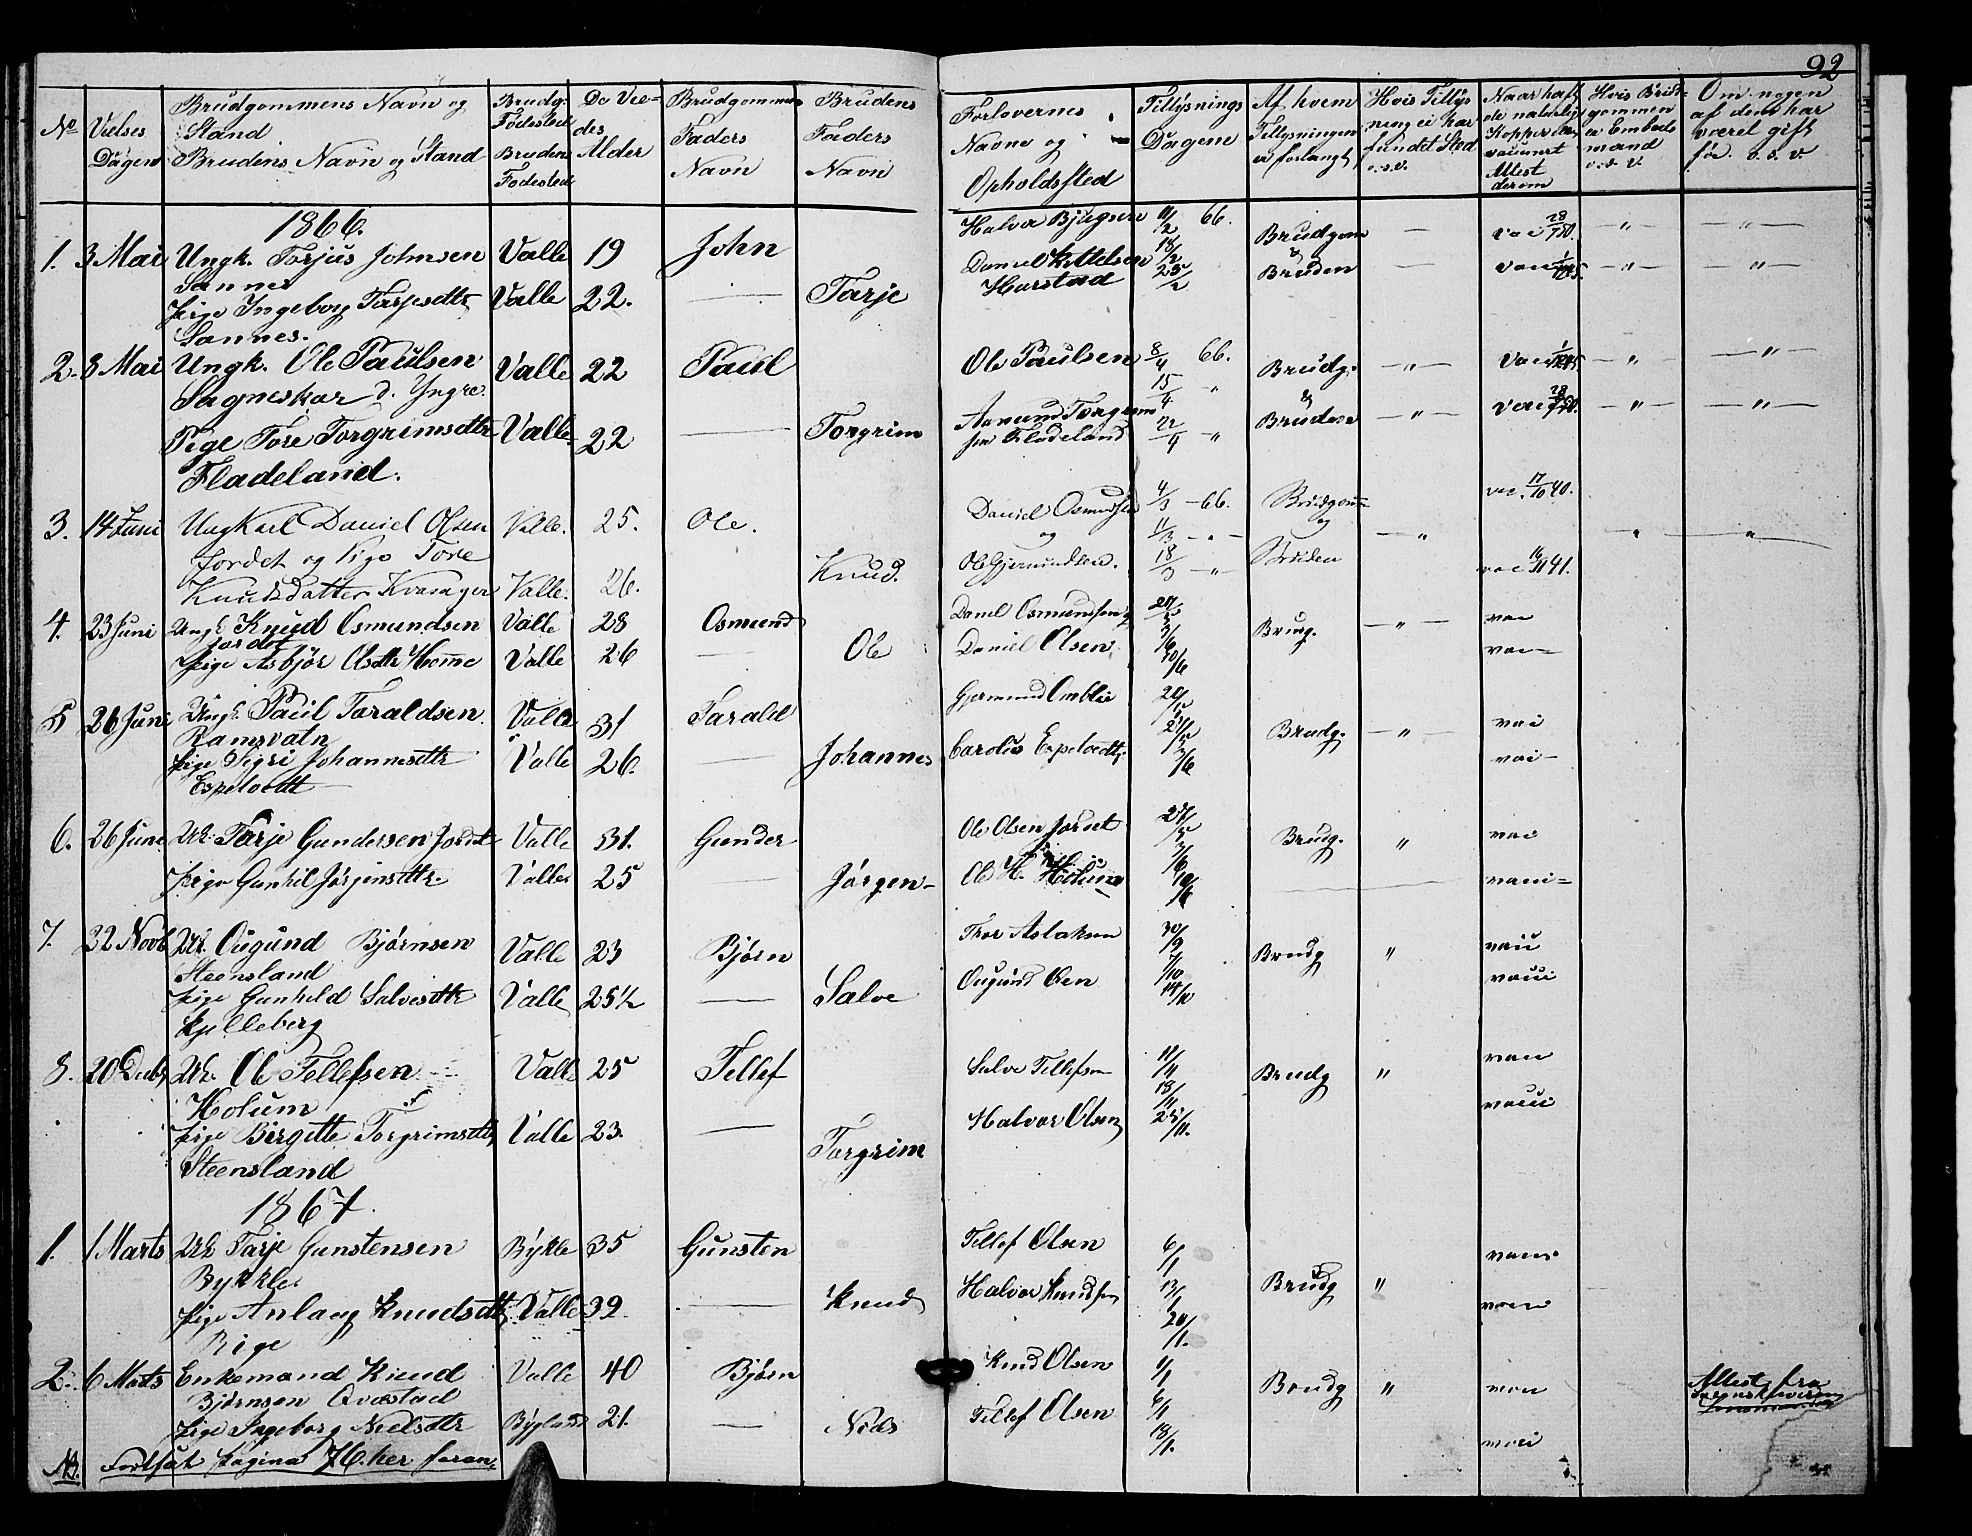 92
No
Vielses Dagen
Brudgommens Navn og Stand
Brudens Navn og Stand
Brudg. Fødested
Brudens Fødested
De Viedes Alder
Brudgommens Faders Navn
Brudens Faders Navn
Forlovernes Navne og Opholdssted
Tillysnings Dagen
Af hvem Tillysningen er forlangt
Hvis Tillysning ei har fundet Sted o.s.v.
Naar havt de naturlige Kopper el. vaccineret Attest derom
Hvis Brudgommen er Embedsmand o.s.v.
Om nogen af dem har været gift før o.s.v.
1866.
1. 3 Mai Ungk. Torjus Johnsen Valle 19 John Halvor Bjugsen 11/2 66. Brudgom — vac 28/7 50. — " — — " —
Sannes Daniel Kittelsen 18/2 &
Pige Ingeborg Tarjesdtr Valle 22. — Tarje Harstad 25/2 Bruden — vac — " — — " —
Sannes.
2. 3 Mai Ungk. Ole Paulsen Valle 22 Paul Ole Paulsen 8/4 66. Brudg. — " — vac — " — — " —
Sagneskar d. Yngre. 15/4 " &
Pige Tore Torgrimsdtr Valle 22 — Torgrim Aamund Torgrims 22/4 — " Bruden — " — vac — " — — " —
Fladeland. sen Fladeland
3. 14 Juni Ungkarl Daniel Olsen Valle. 25. Ole. Daniel Osmundsen 4/3 — 66. Brudgom vac. 17/10 40.
Jordet og Pige Tore og 11/3 — " — og — " " "
Knudsdatter Kvasager Valle. 26. Knud. Ole Gjermundsen. 18/3 — " — Bruden vac 16/11 41.
4. 23 Juni Ungk Knud Osmundsen Valle 28 Osmund Daniel Osmundsen 27/5 Brudg. — " — vac
Jordet 3/6
Pige Asbjør Olsdtr Homme Valle 26 — Ole Daniel Olsen 10/6 vac —
5 26 Juni Ungk. Paul Taraldsen Valle 31 Tarald Gjermund Omblie 20/5 Brudg. — " — vac
Ramsvatn 27/5
Pige Sigri Johannesdtr Valle 26. — Johannes Carolus Espetvedt 3/6 vac —
Espetvedt —
6. 26 Juni Uk. Tarje Gundersen Jordet Valle 31. Gunder Ole Olsen Jordet 27/5 Brudg. " vac
3/6
Pige Gunhil Jørgensdtr. Valle 25 — Jørgen — Ole H. Holum 10/6 vacci —
7. 22 Novb Uk. Ougund Bjørnsen Valle 23 Bjørn Thor Aslaksen 30/9 Brudg " vacci
Steensland 7/10
Pige Gunhild Salvesdtr Valle 25½ — Salve Ougund Oen 14/10 vacci
Kjelleberg
8. 20 Decbr Uk. Ole Tellefsen Valle 25 Tellef Salve Tellefsen 11/11 Brudg " vacc
Holum 18/11
Pige Birgitte Torgrimsdtr Valle 23. — Torgrim Halvor Olsen 25/11. vacci
Steensland
1867.
1. 1 Marts Uk Tarje Gunstensen Bykle 35 Gunsten Tellef Olsen 6/1 Brudg " vacc
Bykkle. 13/1
Pige Anlaug Knudsdtr Valle 39 — Knud Halvor Knudsen 20/1. vacc
Rige
2. 6 Marts Enkemand Knud Valle 40 Bjørn Knud Olsen 1/1 Brudg " vacc Attest fra
Bjørnsen Qvæstad 6/1
Pige Ingeborg Nielsdtr Bygland 21. — Niels Tellef Olsen 13/1. vacci
NB. Fortsat pagina 76. her foran.